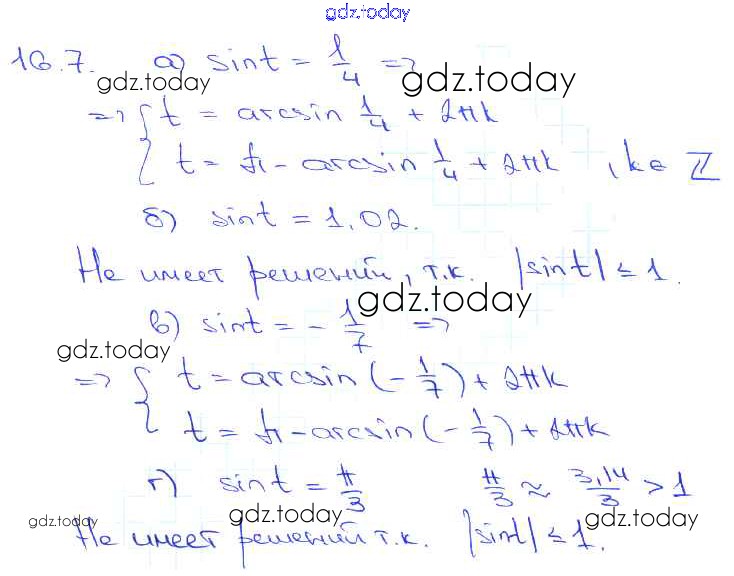 gdz.today
16.7. а) sint = 1/4 =>
gdz.today gdz.today
=> { t = arcsin 1/4 + 2πk
{ t = π - arcsin 1/4 + 2πk , k ∈ ℤ
б) sint = 1,02.
Не имеет решений, т.к. |sint| ≤ 1.
gdz.today
в) sint = - 1/7 =>
gdz.today
=> { t = arcsin (- 1/7) + 2πk
{ t = π - arcsin (- 1/7) + 2πk
г) sint = π/3 π/3 ≈ 3,14/3 > 1
gdz.today gdz.today gdz.today
Не имеет решений т.к. |sint| ≤ 1.